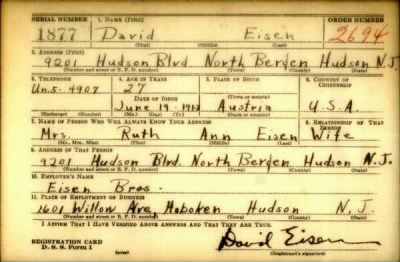 SERIAL NUMBER 1. NAME (Print) ORDER NUMBER
1877 David Eisen 2694
(First) (Middle) (Last)
2. ADDRESS (Print)
9201 Hudson Blvd North Bergen Hudson N.J.
(Number and street or R. F. D. number) (Town) (County) (State)
3. TELEPHONE 4. AGE IN YEARS 5. PLACE OF BIRTH 6. COUNTRY OF CITIZENSHIP
Un.5-9907 27
DATE OF BIRTH Austria U.S.A.
June 19 -
(Exchange) (Number) (Mo.) (Day) (Yr.)
7. NAME OF PERSON WHO WILL ALWAYS KNOW YOUR ADDRESS 8. RELATIONSHIP OF THAT PERSON
Mrs. Ruth Ann Eisen Wife
(Mr., Mrs., Miss) (First) (Middle) (Last)
9. ADDRESS OF THAT PERSON
9201 Hudson Blvd. North Bergen Hudson N.J.
(Number and street or R. F. D. number) (Town) (County) (State)
10. EMPLOYER'S NAME
Eisen Bros.
11. PLACE OF EMPLOYMENT OR BUSINESS
1601 Willow Ave Hoboken Hudson N.J.
(Number and street or R. F. D. number) (Town) (County) (State)
I AFFIRM THAT I HAVE VERIFIED ABOVE ANSWERS AND THAT THEY ARE TRUE.
REGISTRATION CARD
D. S. S. Form 1 (over) David Eisen
(Registrant's signature)